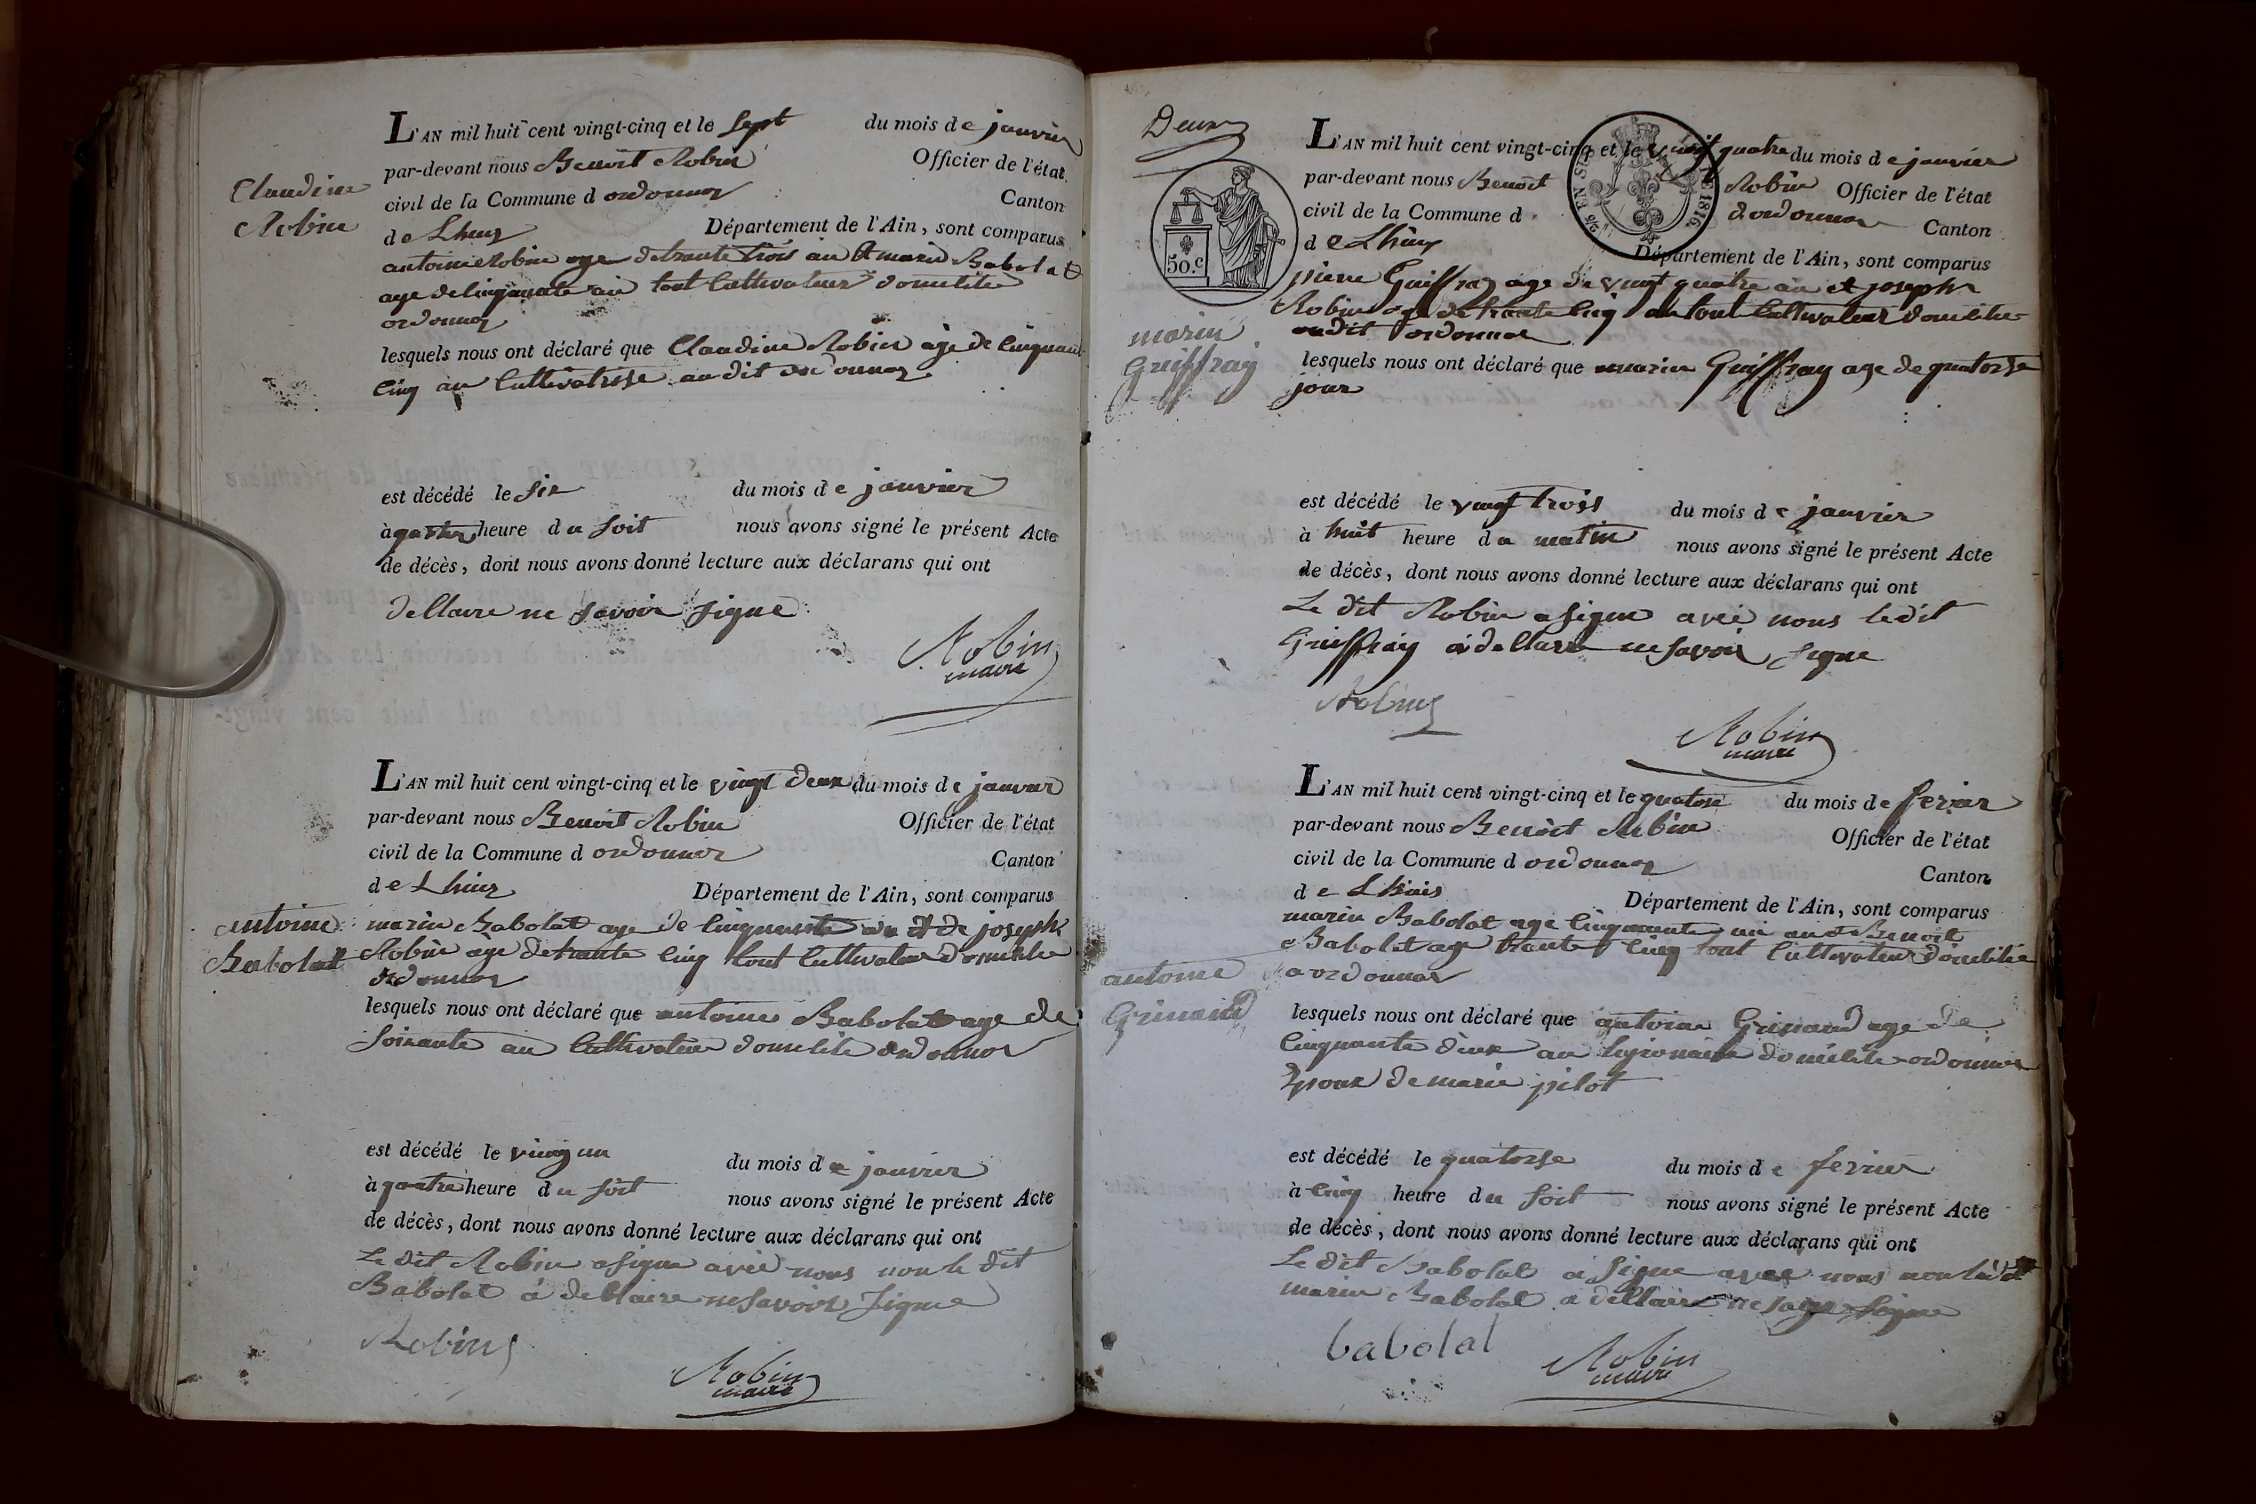 L'AN mil huit cent vingt-cinq et le sept du mois de janvier
par-devant nous Benoit Robin Officier de l'état
civil de la Commune d ordonnaz Canton
de Lhuis Département de l'Ain, sont comparus
antoine Robin age de trante trois an et marin Babolat
age de cinquante an tout Cultivateur domicilie
ordonnaz
lesquels nous ont déclaré que Claudine Robin age de Cinquante
Cinq an Cultivatrisse au dit ordonnaz
Claudine
Robin
est décédé le six du mois de janvier
à quatre heure du soit nous avons signé le présent Acte
de décès, dont nous avons donné lecture aux déclarans qui ont
dellaire ne savoir signe
Robin
maire
L'AN mil huit cent vingt-cinq et le vingt deux du mois de janvier
par-devant nous Benoit Robin Officier de l'état
civil de la Commune d ordonnaz Canton
de Lhuis Département de l'Ain, sont comparus
marin Babolat age de Cinquante an et de joseph
Robin age de trante Cinq tout Cultivateur domicilie
ordonnaz
lesquels nous ont déclaré que antoine Babolat age de
soixante an Cultivateur domicilie ordonnaz
antoine
Babolat
est décédé le ving un du mois de janvier
à quatre heure du soit nous avons signé le présent Acte
de décès, dont nous avons donné lecture aux déclarans qui ont
Le dit Robin a signe avec nous non le dit
Babolat a dellaire ne savoir signe
Robin
Robin
maire
Deux
50.c
1816
L'AN mil huit cent vingt-cinq et le vingt quatre du mois de janvier
par-devant nous Benoit Robin Officier de l'état
civil de la Commune d d'ordonnaz Canton
de Lhuis
Département de l'Ain, sont comparus
pierre Guiffray age de vingt quatre an et joseph
Robin age de trante Cinq an tout Cultivateur domicilie
audit ordonnaz
lesquels nous ont déclaré que marin Guiffray age de quatorse
jour
marin
Guiffray
est décédé le vingt trois du mois de janvier
à huit heure du matin nous avons signé le présent Acte
de décès, dont nous avons donné lecture aux déclarans qui ont
Le dit Robin a signe avec nous le dit
Guiffray a dellaire ne savoir signe
Robin
Robin
maire
L'AN mil huit cent vingt-cinq et le quatorse du mois de ferier
par-devant nous Benoit Robin Officier de l'état
civil de la Commune d ordonnaz Canton
de Lhuis Département de l'Ain, sont comparus
marin Babolat age Cinquante un an et Benoit
Babolat age trante Cinq tout Cultivateur domicilie
a ordonnaz
lesquels nous ont déclaré que antoine Grinand age de
Cinquante deux an legionaire domicilie ordonnaz
Epoux de marie pilot
antoine
Grinand
est décédé le quatorse du mois de ferier
à Cinq heure du soit nous avons signé le présent Acte
de décès, dont nous avons donné lecture aux déclarans qui ont
Le dit Babolat a signe avec nous non le dit
marin Babolat a dellaire ne savoir signe
babolat
Robin
maire